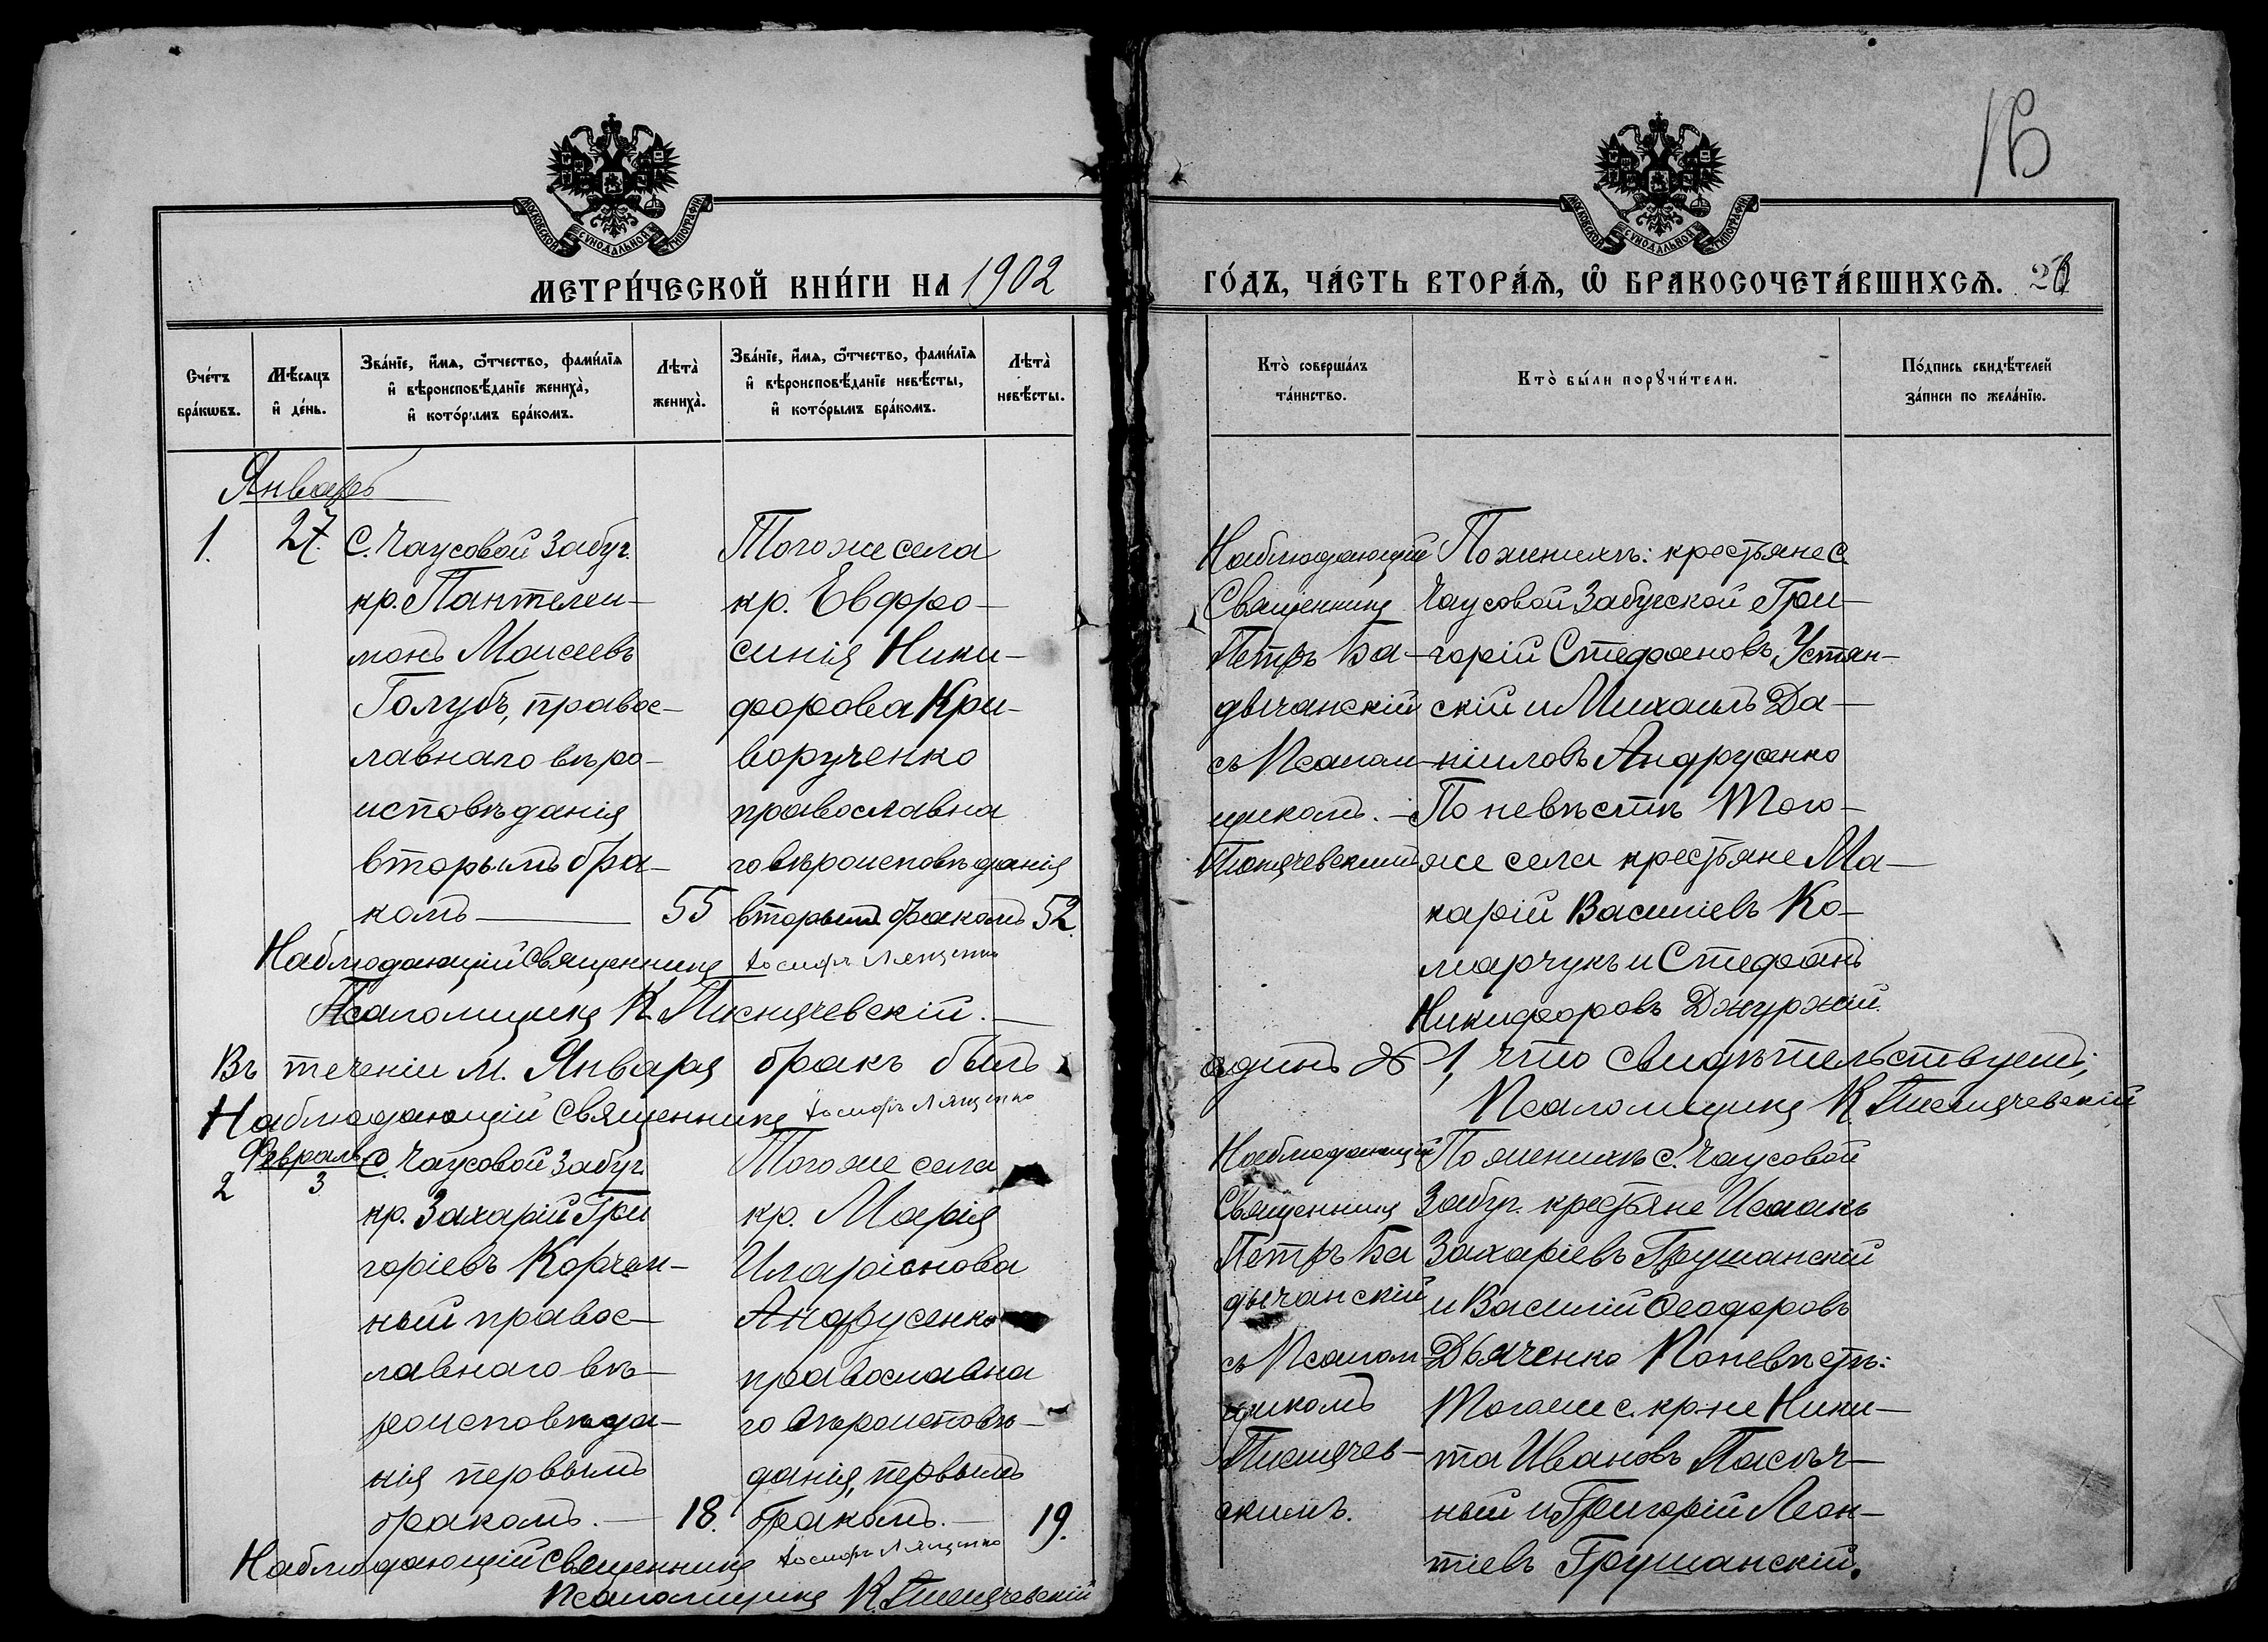 16
МОСКОВСКОЙ СѴНОДАЛЬНОЙ ТИПОГРАФІИ
МОСКОВСКОЙ СѴНОДАЛЬНОЙ ТИПОГРАФІИ
МЕТРИ́ЧЕСКОЙ КНИ́ГИ НА 1902
ГО́ДЪ, ЧА́СТЬ ВТОРА́Ѧ, Ѽ БРАКОСОЧЕТА́ВШИХСѦ.
Сче́тъ бра́кѡвъ.
Мѣ́сяцъ и҆ де́нь.
Зва́нїе, и҆́мѧ, ѻ҆́тчество, фами́лїѧ и҆ вѣроисповѣ́данїе жениха̀, и҆ кото́рымъ бра́комъ.
Лѣта̀ жениха̀.
Зва́нїе, и҆́мѧ, ѻ҆́тчество, фами́лїѧ и҆ вѣроисповѣ́данїе невѣ́сты, и҆ кото́рымъ бра́комъ.
Лѣта̀ невѣ́сты.
Кто̀ соверша́лъ та́инство.
Кто̀ бы́ли порꙋчи́тели.
По́дпись свидѣ́телей за́писи по жела́нїю.
Январь
1.
27.
С. Чаусовой Забуг.
кр. Пантелеи-
монъ Моисеевъ
Голубъ, правос-
лавнаго веѣро-
исповѣданія
вторымъ бра-
комъ
55
Того же села
кр. Евфро-
синія Ники-
форова Кри-
ворученко
православна
го вѣроисповѣданія
вторымъ бракомъ
52.
Наблюдающій
Священникъ
Петръ Ба-
дычанскій
съ Псалом-
щикомъ.
По женихѣ: крестьяне с.
Чаусовой Забугской Гри-
горій Стефановъ Устян-
скій и Михаилъ Да-
ніиловъ Андрусенко
По невѣстѣ того-
же села крестьяне Ма-
карій Василіевъ Ко-
марчукъ и Стефанъ
Никифоровъ
Наблюдающій Священникъ Іосифъ Лященко
Псаломщикъ К.
Въ теченіи м. Января бракъ былъ
одинъ № 1, что свидѣтельствуемъ;
Наблюдающій Священникъ Іосифъ Лященко
Псаломщикъ К.
Февраль
2
3
С. Чаусовой Забуг.
кр. Захарій Гри
горіевъ Корчем-
ный правос-
лавнаго вѣ-
роисповѣда-
нія первымъ
бракомъ.
18.
Того же села
кр. Марія
Иларіонова
Андрусенко
православна
го вѣроисповѣ-
данія, первымъ
бракомъ.
19.
Наблюдающій
Священникъ
Петръ Ба
дычанскій
съ Псалом
щикомъ
По женихѣ с. Чаусовой
Забуг. крестьяне Исаакъ
Захаріевъ Грушанскій
и Василій Ѳеодоровъ
Дьяченко По невѣстѣ:
Того же с. кр-не Ники-
та Ивановъ Пасѣч-
ный и Григорій Леон-
тіевъ Грушанскій.
Наблюдающій Священникъ Іосифъ Лященко
Псаломщикъ К.